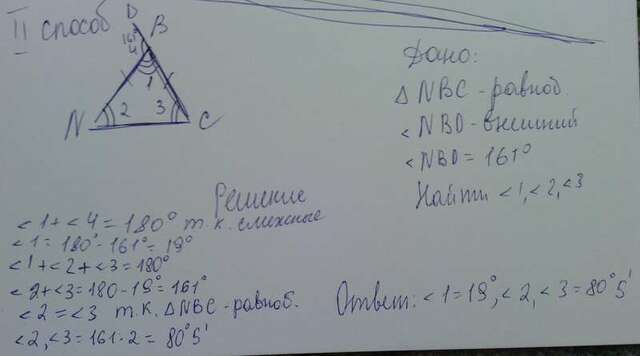 II способ
D
B
161°
4
1
2
3
N
C
Дано:
△ NBC - равноб.
< NBD - внешний
< NBD = 161°
Найти <1, <2, <3
Решение
<1 + <4 = 180° т.к. смежные
<1 = 180° - 161° = 19°
<1 + <2 + <3 = 180°
<2 + <3 = 180 - 19° = 161°
<2 = <3 т.к. △NBC - равноб.
<2, <3 = 161 : 2 = 80° 5'
Ответ: <1 = 19°, <2, <3 = 80° 5'